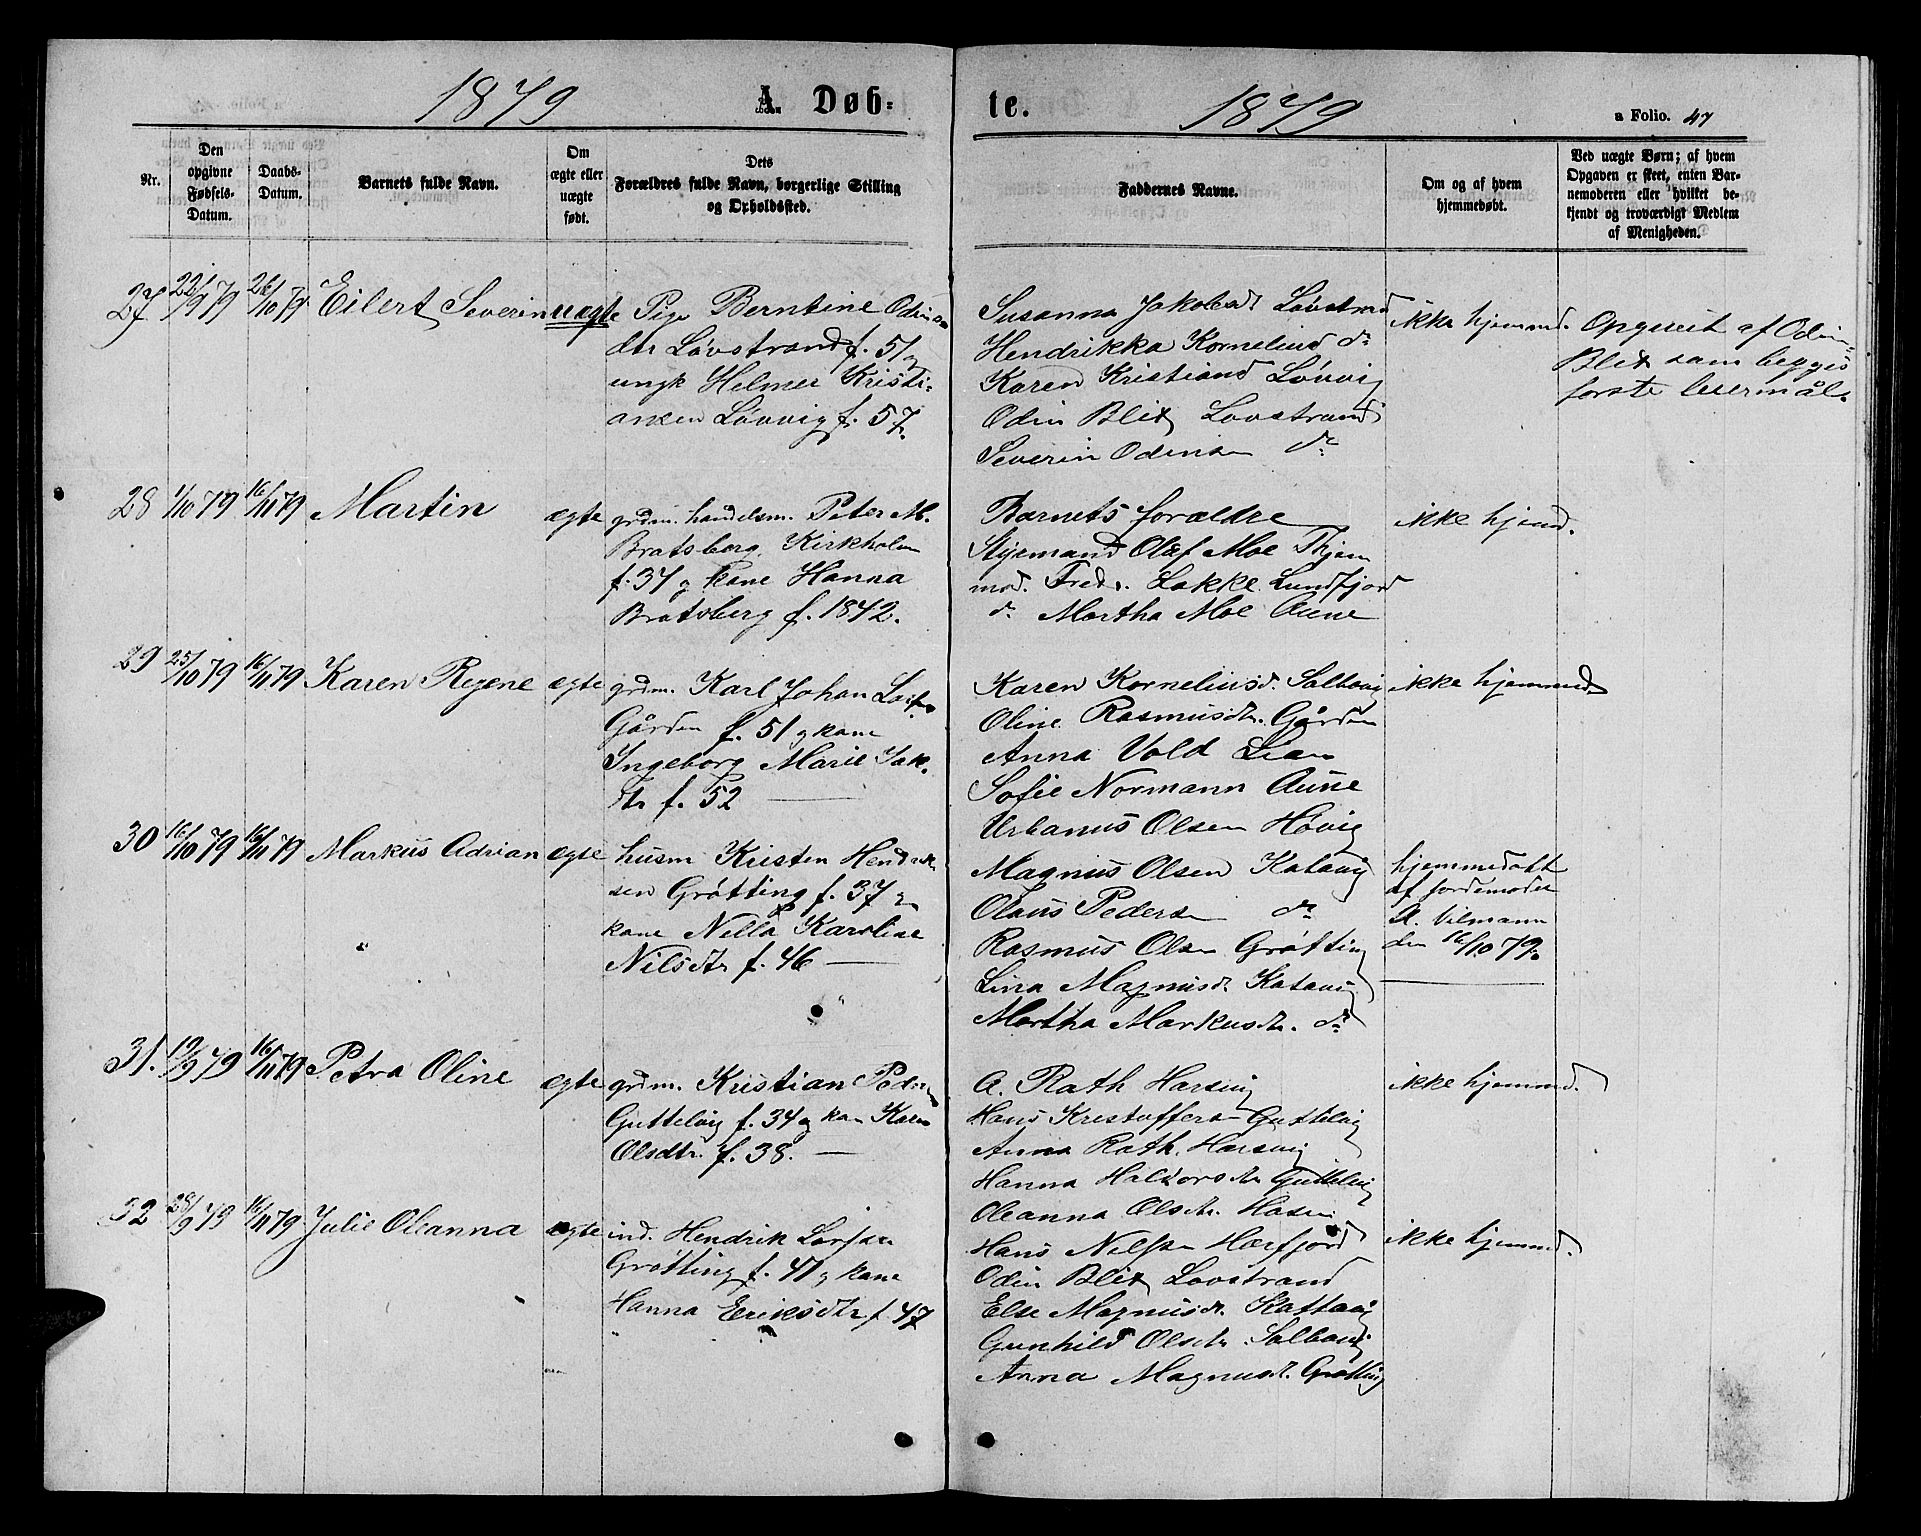 1879 A. Døb-
te. 1879 a Folio. 47
Nr.
Den opgivne Fødsels-Datum.
Daabs-Datum.
Barnets fulde Navn.
Om ægte eller uægte født.
Dets Forældres fulde Navn, borgerlige Stilling og Opholdssted.
Faddernes Navne.
Om og af hvem hjemmedøbt.
Ved uægte Børn; af hvem Opgaven er skeet, enten Barnemoderen eller hvilket bekjendt og troværdigt Medlem af Menigheden.
27 22/9 79 26/10 79 Eilert Severin uægte
Pige Berntine Odins
dtr Løvstrand f. 51 og
ungk Helmer Kristi-
ansen Løvvig f. 57.
Susanna Jakobsd. Løvstrand
Hendrikka Kornelius do
Karen Kristiansd Løvvig
Odin Blix Lovstrand
Severin Odinsen do
ikke hjemmed.
Opgivet af Odin
Blix som begges
første leiermål.
28 1/10 79 16/11 79 Martin ægte
grdm. handelsm. Peter M.
Bratsberg. Kirkholm
f. 37 og kone Hanna
Bratsberg f. 1842.
Barnets forældre
Styrmand Olaf Moe Thjem
mod. Fred. Lokke Lundfjord
do Martha Moe Aune
ikke hjemd.
29 25/10 79 16/11 79 Karen Regene ægte
grdm. Karl Johan
Gården f. 51 og kone
Ingeborg Marie Jak.
dtr f. 52
Karen Korneliusd. Salbuvig
Oline Rasmusdtr. Gården
Anna Vold Lian
Sofie Normann Aune
Urbanus Olsen Høvig
ikke hjemmed
30 16/10 79 16/11 79 Markus Adrian ægte
husm Kristen Hendrik
sen Grøtting f. 37 og
kone Nella Karoline
Nilsdtr f. 46
Magnus Olsen Katavig
Olaus Pedersen do
Rasmus Olsen Grøtting
Lina Magnusd. Katavig
Martha Markusdtr. do
hjemmedøbt
af jordemoder
A. Vilmann
den 16/10 79.
31. 19/9 79 16/11 79 Petra Oline ægte
grdm. Kristian Peders
Guttelvig f. 34 og kone Karen
Olsdtr. f. 38.
A. Rath Harsvig
Hans Kristoffersen Guttelvig
Anna Rath. Harsvig
Hanna Haldorsdtr Guttelvig
Oleanna Olsdtr. Hosen
ikke hjemmed.
32 28/9 79 16/11 79 Julie Oleanna ægte
ind. Hendrik Larsen
Grøtting f. 41 og kone
Hanna Eriksdtr f. 47
Hans Nilssen Harfjord
Odin Blix Lovstrand
Else Magnusd. Kattavig
Gunhild Olsdtr. Salbuvig
Anna Magnusd. Grøtting
ikke hjemmed.